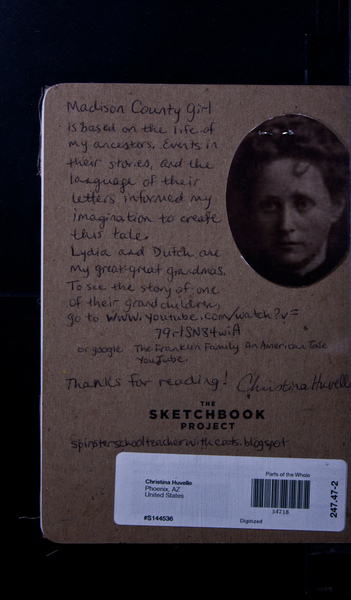 Madison County Girl
is based on the life of
my ancestors. Events in
their stories, and the
language of their
letters informed my
imagination to create
this tale.
Lydia and Dutch are
my great-great grandmas.
To see the story of one
of their grandchildren,
go to www.youtube.com/watch?v=
79rlSN84wiA
or google The Franklin Family An American Tale
YouTube.
Thanks for reading! Christina Huvelle
THE
SKETCHBOOK
PROJECT
spinsterschoolteacherwithcats.blogspot
Parts of the Whole
Christina Huvelle
Phoenix, AZ
United States
34718
#S144536
Digitized
247.47-2